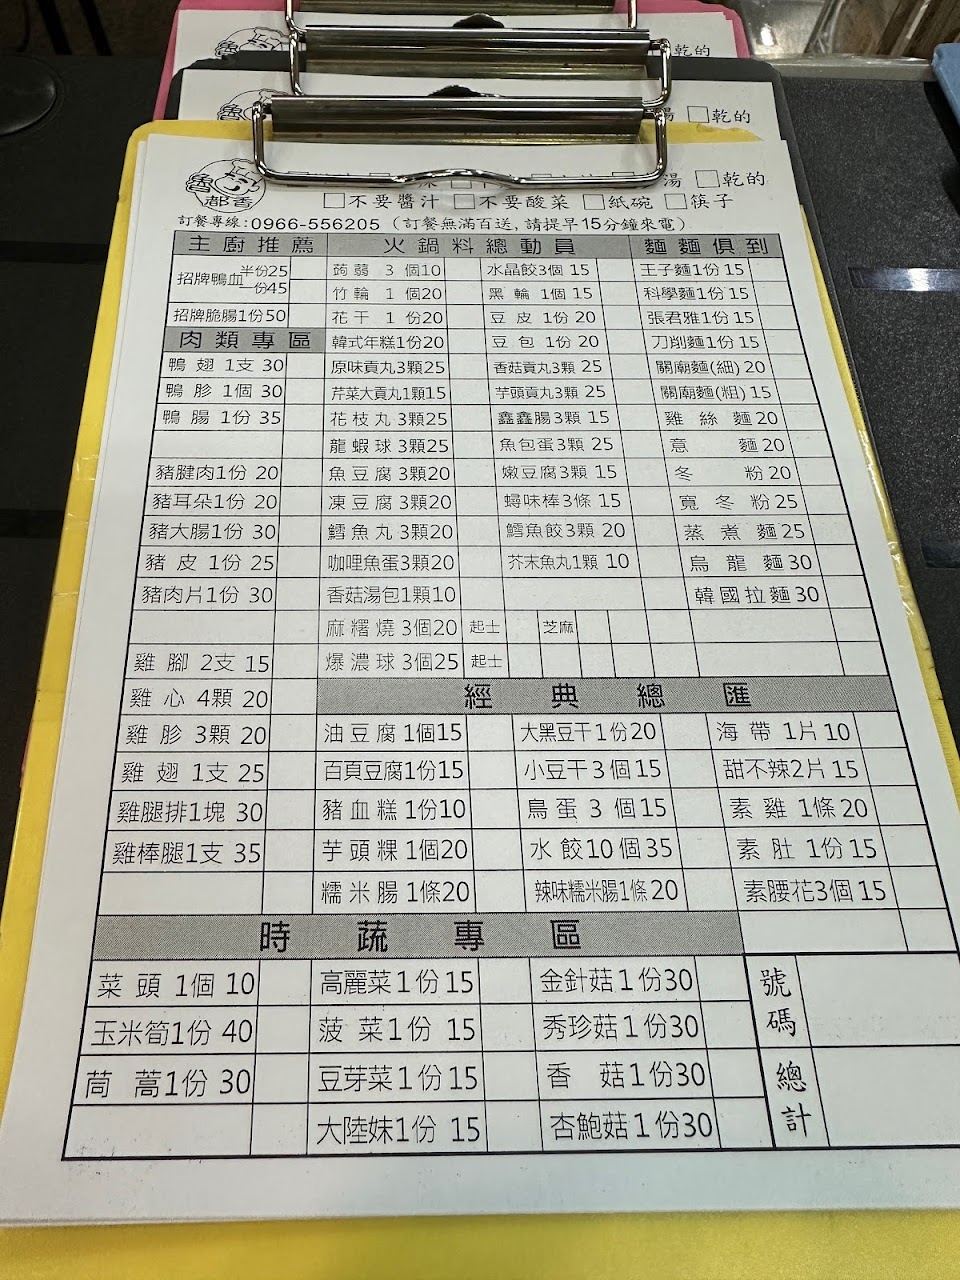 乾的
湯 □乾的
魯 都香
湯 □乾的
□不要醬汁 □不要酸菜 □紙碗 □筷子
訂餐專線:0966-556205 (訂餐無滿百送,請提早15分鐘來電)
主廚推薦 火鍋料總動員 麵麵俱到
招牌鴨血 半份25 一份45 蒟蒻 3 個10 水晶餃3個 15 王子麵1份 15
竹輪 1 個20 黑輪 1個 15 科學麵1份 15
招牌脆腸1份50 花干 1 份20 豆皮 1份 20 張君雅1份 15
肉類專區 韓式年糕1份20 豆包 1份 20 刀削麵1份 15
鴨翅 1支 30 原味貢丸3顆25 香菇貢丸3顆 25 關廟麵(細) 20
鴨胗 1個 30 芹菜大貢丸1顆15 芋頭貢丸3顆 25 關廟麵(粗) 15
鴨腸 1份 35 花枝丸 3顆25 鑫鑫腸3顆 15 雞絲麵 20
龍蝦球 3顆25 魚包蛋3顆 25 意麵 20
豬腱肉1份 20 魚豆腐 3顆20 嫩豆腐3顆 15 冬粉 20
豬耳朵1份 20 凍豆腐 3顆20 蟳味棒3條 15 寬冬粉 25
豬大腸1份 30 鱈魚丸 3顆20 鱈魚餃3顆 20 蒸煮麵 25
豬皮 1份 25 咖哩魚蛋3顆20 芥末魚丸1顆 10 烏龍麵 30
豬肉片1份 30 香菇湯包1顆10 韓國拉麵 30
麻糬燒 3個20 起士 芝麻
雞腳 2支 15 爆濃球 3個25 起士
雞心 4顆 20 經典總匯
雞胗 3顆 20 油豆腐 1個15 大黑豆干1份20 海帶 1片 10
雞翅 1支 25 百頁豆腐1份15 小豆干3個15 甜不辣2片 15
雞腿排1塊 30 豬血糕 1份10 鳥蛋 3 個15 素雞 1條 20
雞棒腿1支 35 芋頭粿 1個20 水餃10個35 素肚 1份 15
糯米腸 1條20 辣味糯米腸1條20 素腰花3個 15
時蔬專區
菜頭 1個 10 高麗菜1份 15 金針菇1份30 號碼
玉米筍1份 40 菠菜1份 15 秀珍菇1份30
茼蒿1份 30 豆芽菜1份 15 香菇1份30 總計
大陸妹1份 15 杏鮑菇1份30